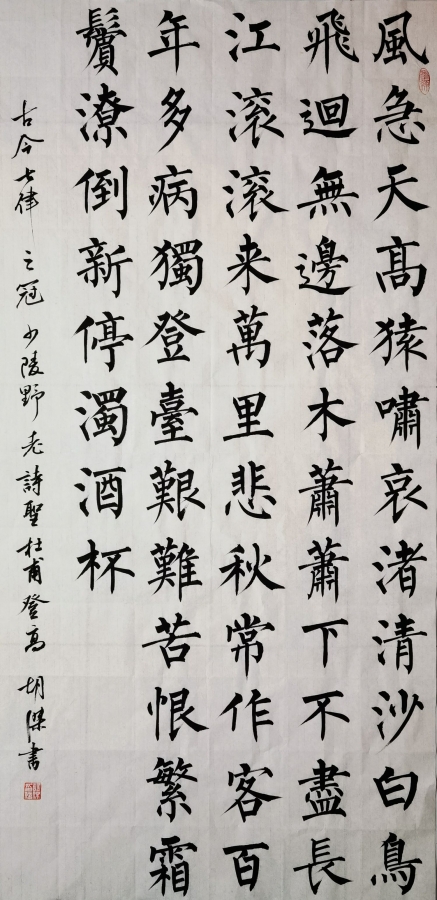 風急天髙猿嘯哀渚清沙白鳥
飛迴無邊落木蕭蕭下不盡長
江滚滚来萬里悲秋常作客百
年多病獨登臺艱難苦恨繁霜
鬢潦倒新停濁酒杯
古今七律之冠少陵野老詩聖杜甫登高胡傑書